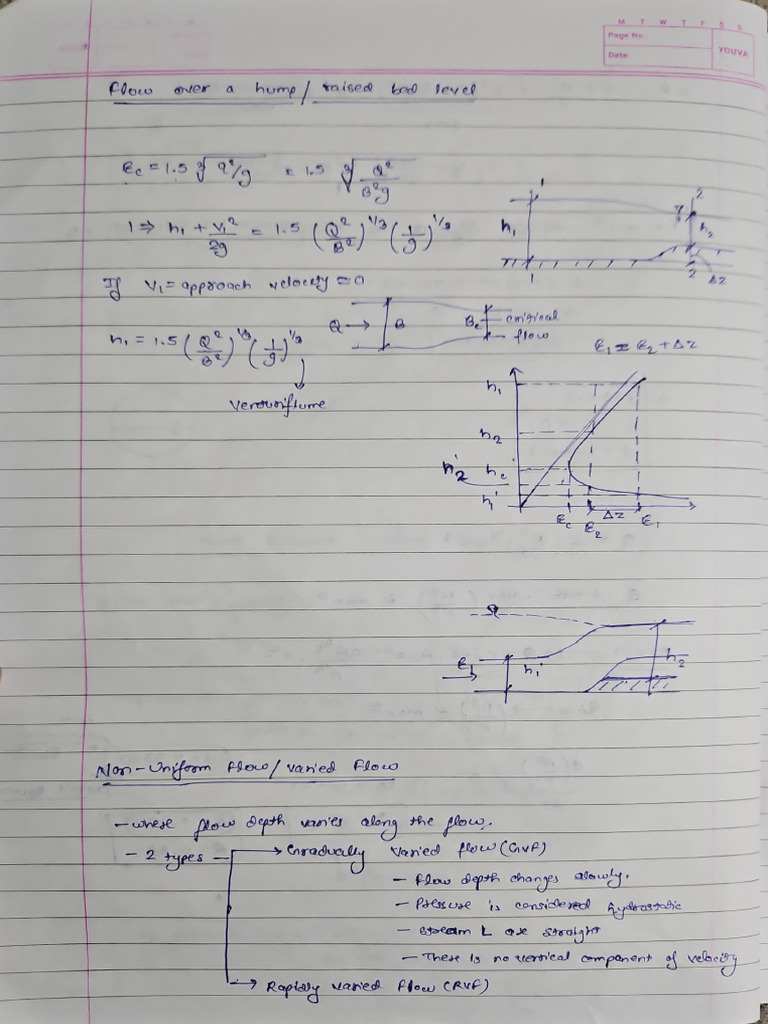 M T W T F S S
Page No.:
Date:
YOUVA
Flow over a hump/raised bed level
Ec = 1.5 ∛(q²/g) = 1.5 ∛(Q²/B²g)
1 ⇒ h₁ + V₁²/2g = 1.5 (Q²/B²)^1/3 (1/g)^1/3
If V₁ = approach velocity = 0
h₁ = 1.5 (Q²/B²)^1/3 (1/g)^1/3
Q → B Bc critical
flow
1
2
h₁
h₂
1
2
ΔZ
E₁ = E₂ + ΔZ
h₁
h₂
hc
h₂'
h₁'
Ec E₂ ΔZ E₁
E₁
h₁'
h₂
Non-Uniform Flow/varied Flow
- where flow depth varies along the flow.
- 2 types → Gradually varied flow (GVF)
- Flow depth changes slowly.
- Pressure is considered hydrostatic
- stream L are straight
- There is no vertical component of velocity
→ Rapidly varied Flow (RVF)